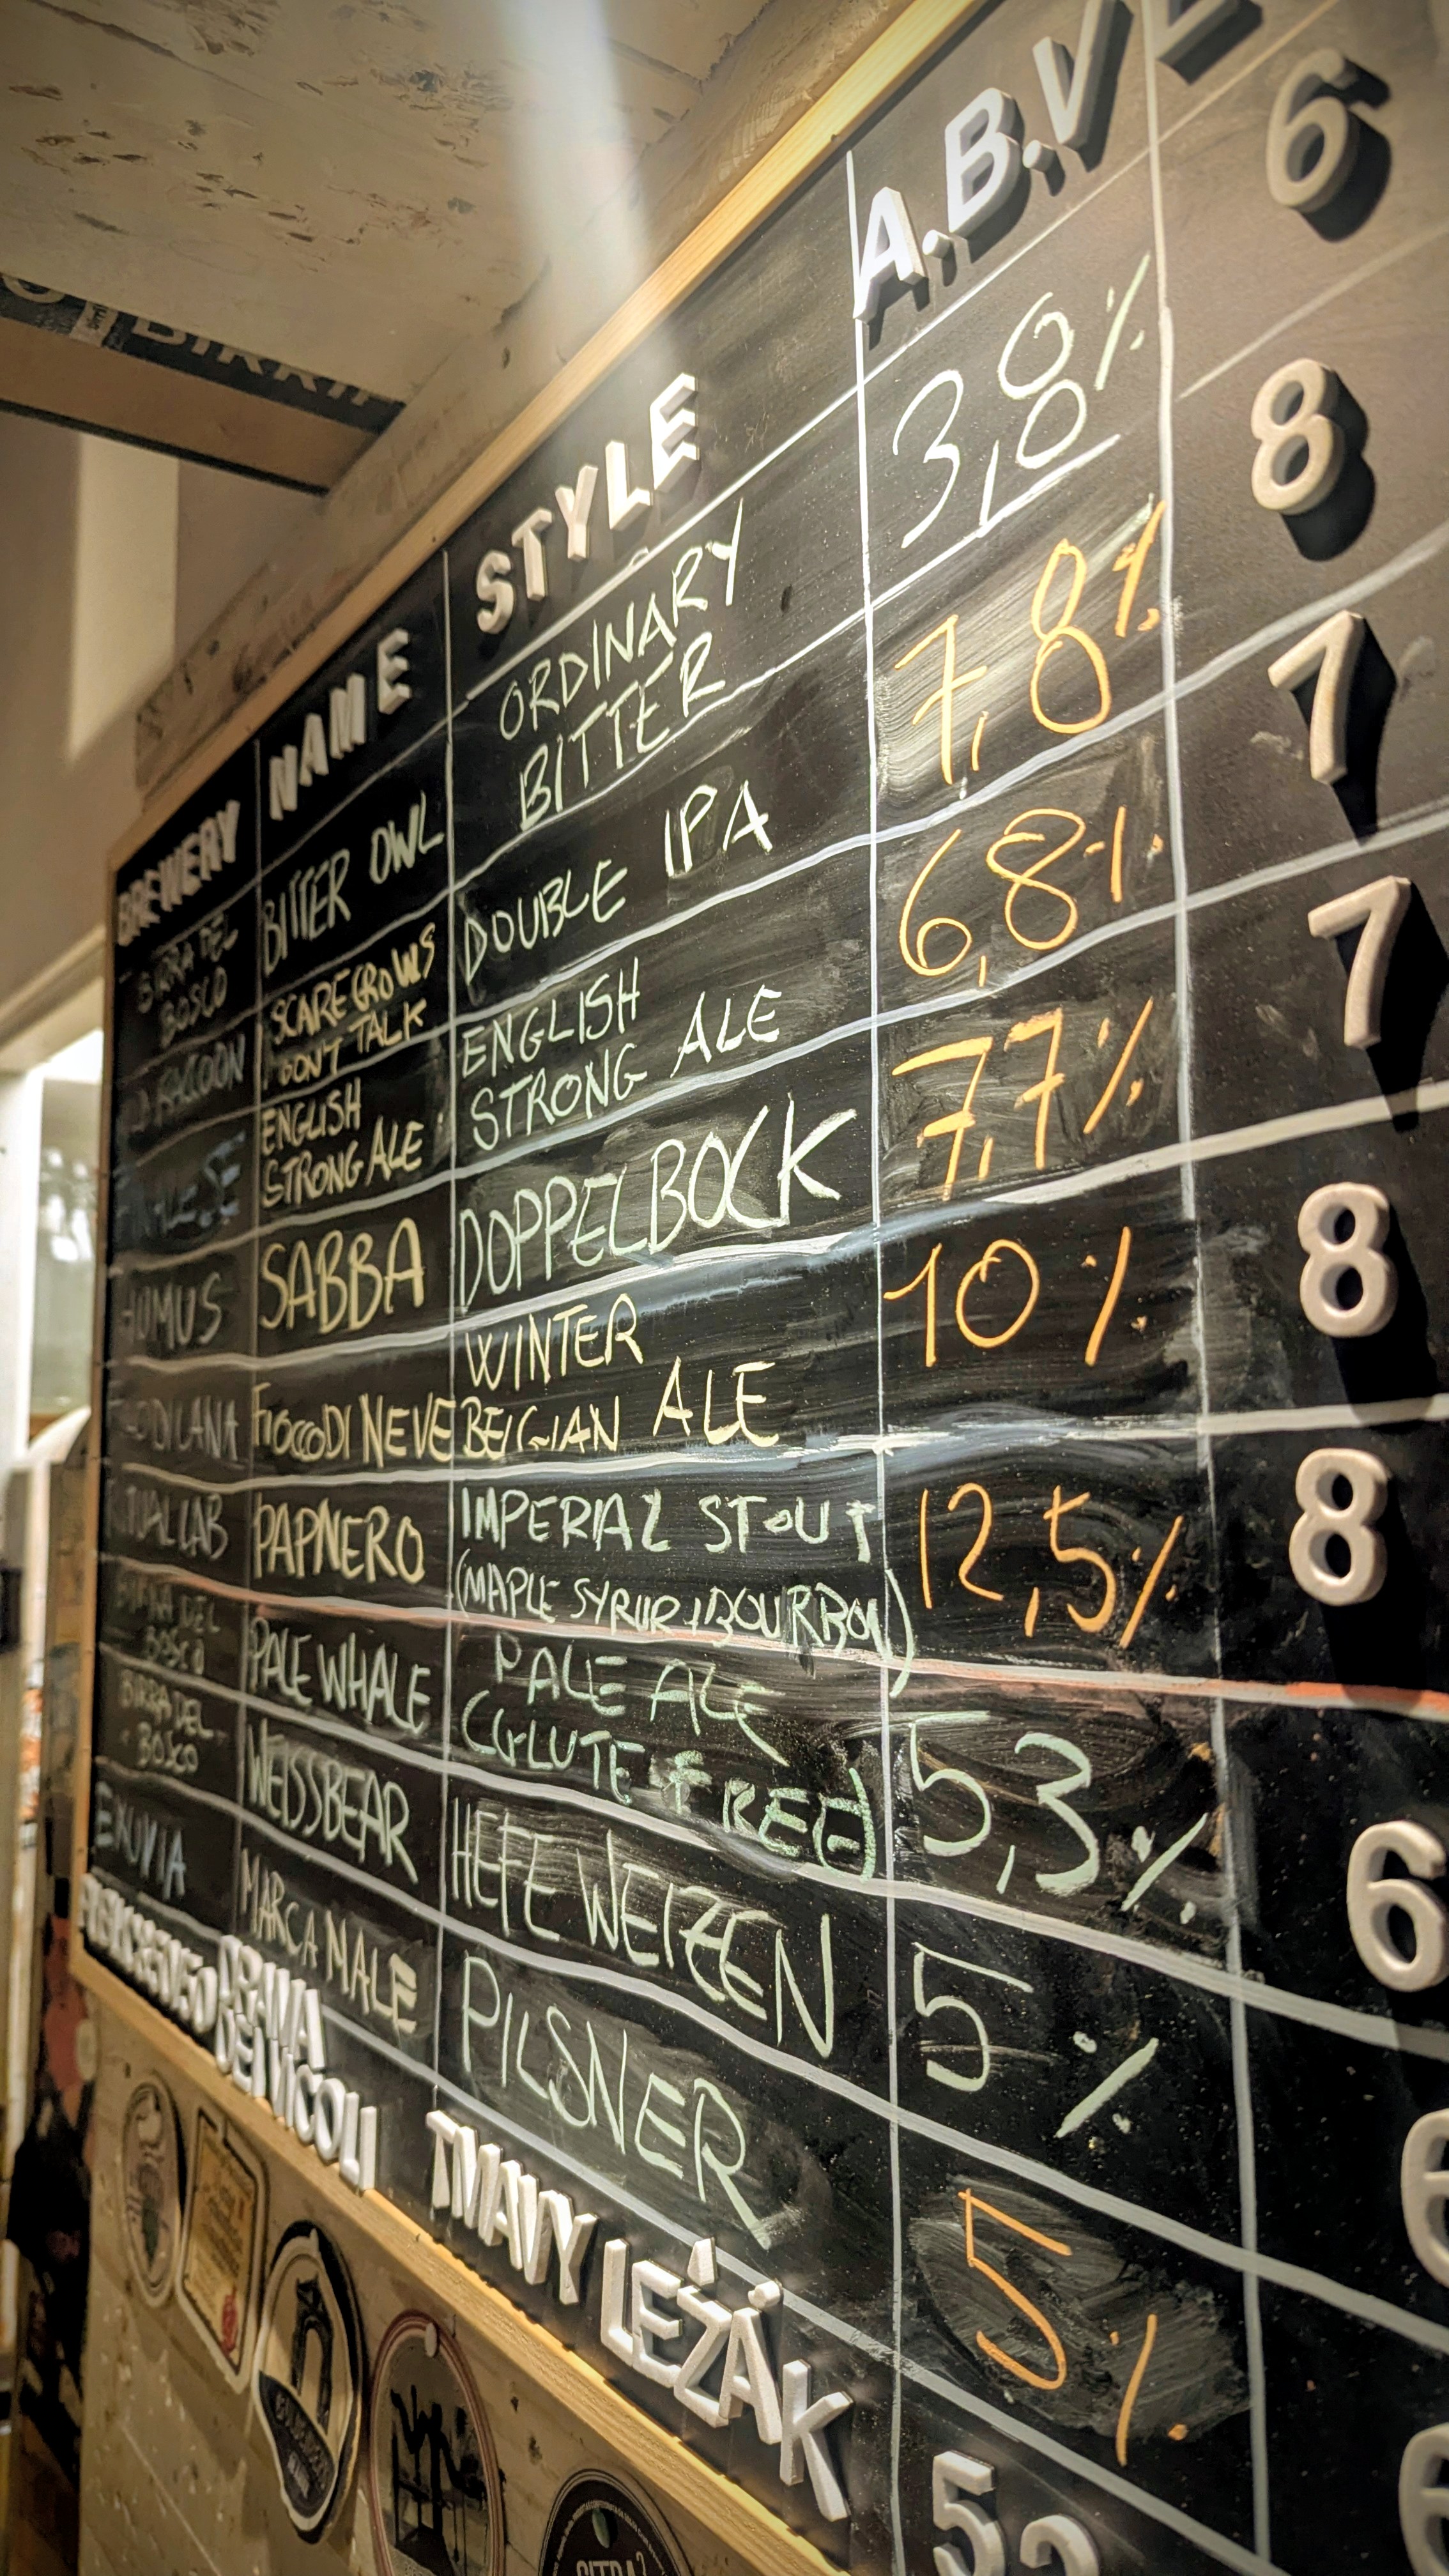 BREWERY NAME STYLE A.B.V
BIRRA DEL
BOSCO
BITTER OWL
ORDINARY
BITTER
3,8%
6
RACOON
SCARECROWS
DON'T TALK
DOUBLE IPA
7,8%
8
ENGLISH
STRONG ALE
ENGLISH
STRONG ALE
6,8%
7
HUMUS
SABBA
DOPPELBOCK
7,7%
7
FIOCCO DI NEVE
WINTER
BELGIAN ALE
10%
8
PAPNERO
IMPERIAL STOUT
(MAPLE SYRUP + BOURBON)
12,5%
8
DEL
BOSCO
PALE WHALE
PALE ALE
(GLUTE FREE)
5,3%
6
BIRRA DEL
BOSCO
WEISSBEAR
HEFE WEIZEN
5%
6
EXUVIA
MARCA MALE
PILSNER
5%
6
TMAVY LEŽÁK
5,2